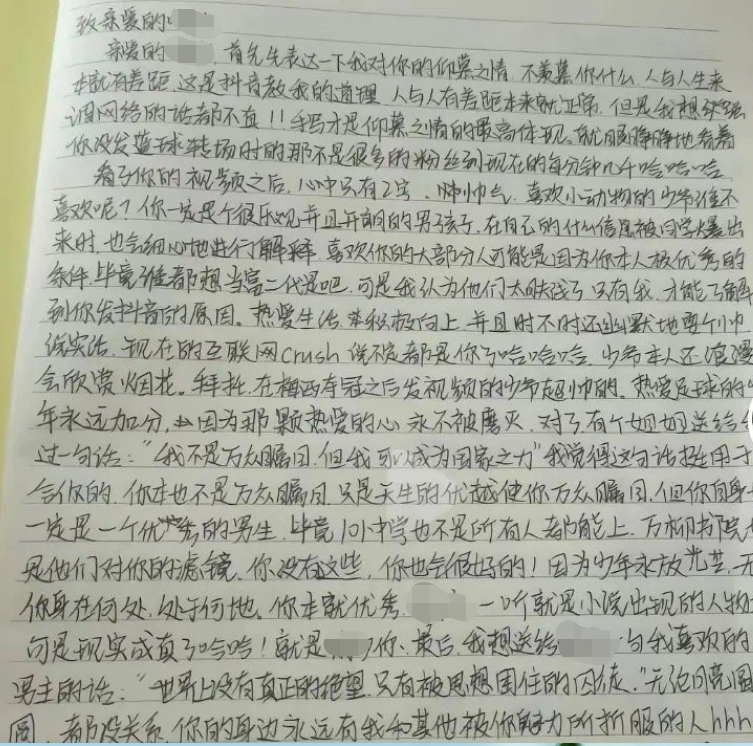 致亲爱的
亲爱的 , 首先先表达一下我对你的仰慕之情,不羡慕你什么,人与人生来
本就有差距,这是抖音教我的道理,人与人有差距本来就正常,但是我想
网络的话都不真!! 我才是仰慕之情的最高体现。就 静静地看着
你没发篮球转场时的那不是很多的粉丝到现在的每分钟几千哈哈哈
看了你的视频之后,心中只有2字,帅帅气,喜欢小动物的少年谁不
喜欢呢?你一定是个很乐观并且开朗的男孩子,在自己的什么信息被同学爆出
来时,也会细心地进行解释,喜欢你的大部分人可能是因为你本人极优秀的
条件,毕竟谁都想当富二代是吧,可是我认为他们太肤浅了,只有我,才能了解
到你发抖音的原因。热爱生活,积极向上,并且时不时还幽默地耍个帅
说实话,现在的互联网crush说不定都是你了哈哈哈,少年本人还浪漫
会欣赏烟花。拜托,在梅西夺冠之后发视频的少年超帅的。热爱足球的
年永远加分,因为那颗热爱的心永不被磨灭,对了有个姐姐送给
过一句话:“我不是万众瞩目,但我可以成为国家之力”我觉得这句话挺用于
你的,你本也不是万众瞩目,只是天生的优越使你万众瞩目,但你自身
一定是一个优秀的男生,毕竟101中学也不是所有人都能上,万柳书院
是他们对你的滤镜,你没有这些,你也会很好的!因为少年永放光芒,无
你身在何处,处于何地。你本就优秀, 一听就是小说出现的人物
可是现实成真了哈哈!就是 你、最后,我想送给 句我喜欢的
男主的话:“世界上没有真正的绝望,只有被思想困住的囚徒。”无论
圆,都没关系,你的身边永远有我和其他被你魅力所折服的人hhh